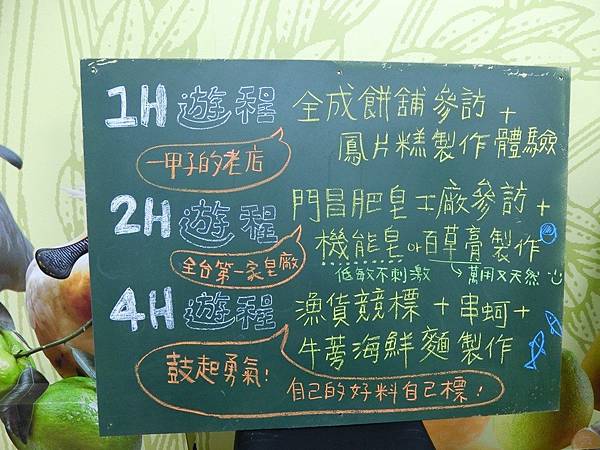 1H 遊程 全成餅舖參訪 +
鳳片糕製作體驗
一甲子的老店
2H 遊程 門昌肥皂工廠參訪 +
機能皂 or 百草膏製作
全台第一家皂廠
低敏不刺激 萬用又天然
4H 遊程 漁貨競標 + 串蚵 +
牛蒡海鮮麵製作
鼓起勇氣!
自己的好料自己標!